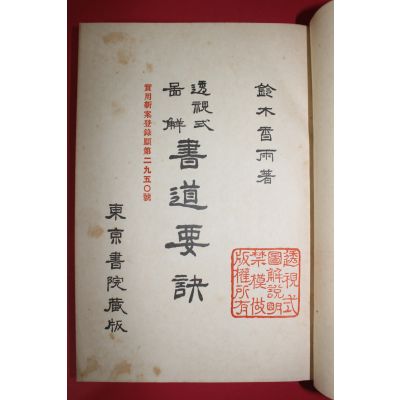 鈴木香雨著
透視式
啚解
書道要訣
實用新案登錄願第二九五〇號
東京書院藏版
透視式
圖解説明
禁模倣
版權所有